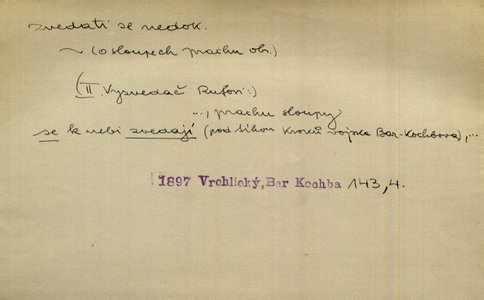 zvedati se nedok.
~ (o sloupech prachu obr.)
(II. Vyzvedač Rufovi:)
..., prachu sloupy
se k nebi zvedají (pod tíhou kroků vojska Bar-Kochbova),...
1897 Vrchlický, Bar Kochba 143,4.